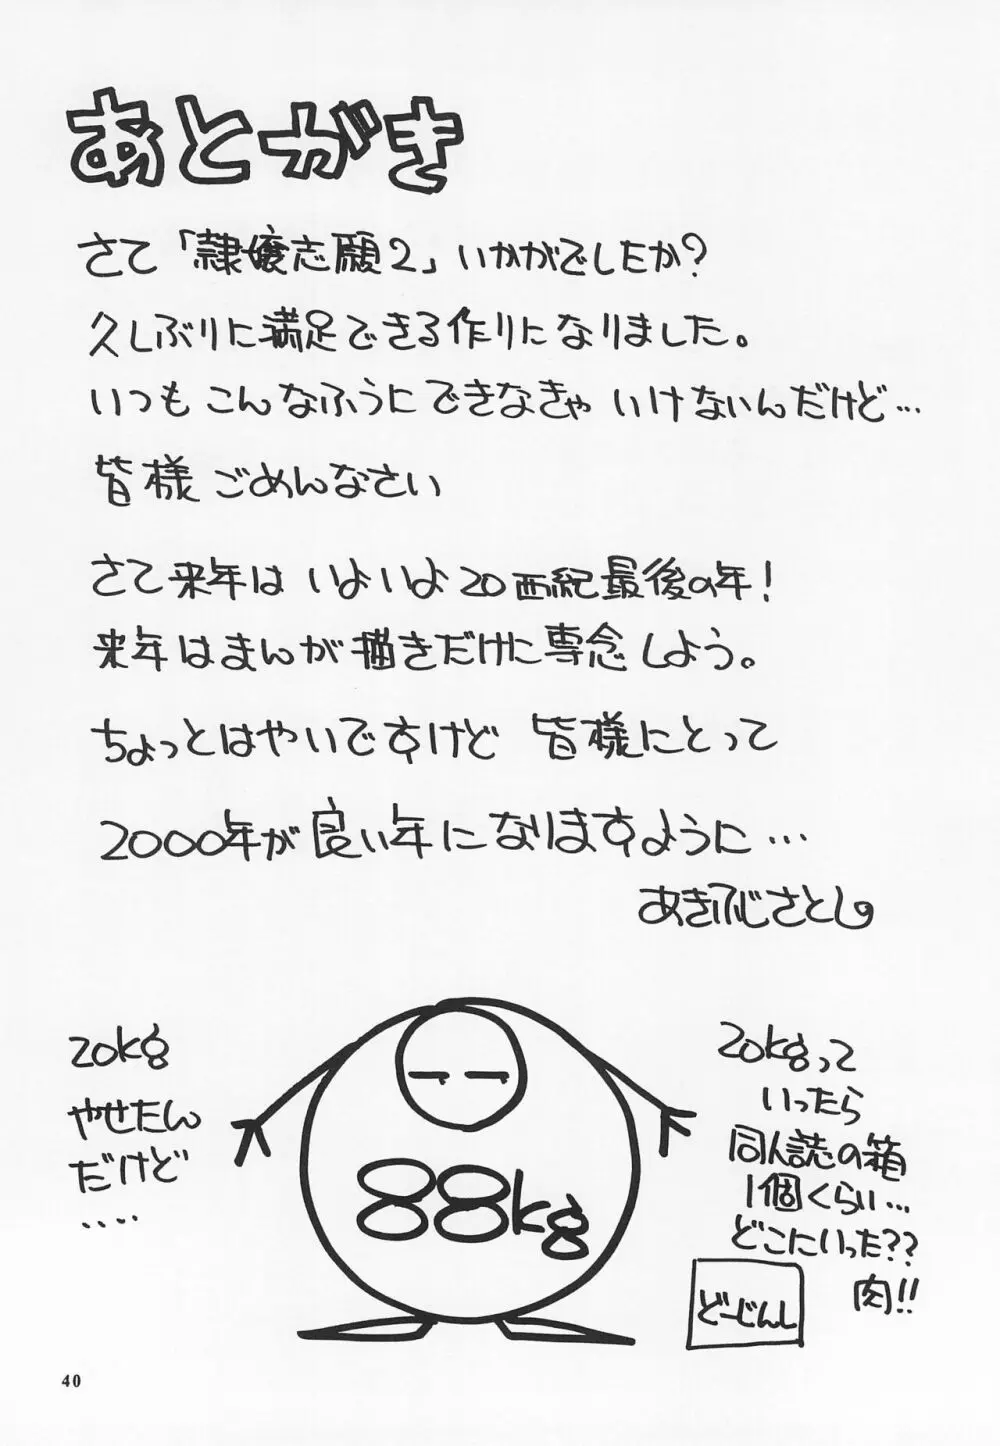 あとがき
さて「隷嬢志願2」いかがでしたか?
久しぶりに満足できる作りになりました。
いつも こんなふうにできなきゃ いけないんだけど…
皆様 ごめんなさい
さて来年は いよいよ20西紀最後の年!
来年はまんが描きだけに専念しよう。
ちょっとはやいですけど 皆様にとって
2000年が良い年になりますように…
あきふじさとし
20kg
やせたん
だけど
‥‥
88kg
20kgって
いったら
同人誌の箱
1個くらい…
どこにいった??
肉!!
どーじんし
40